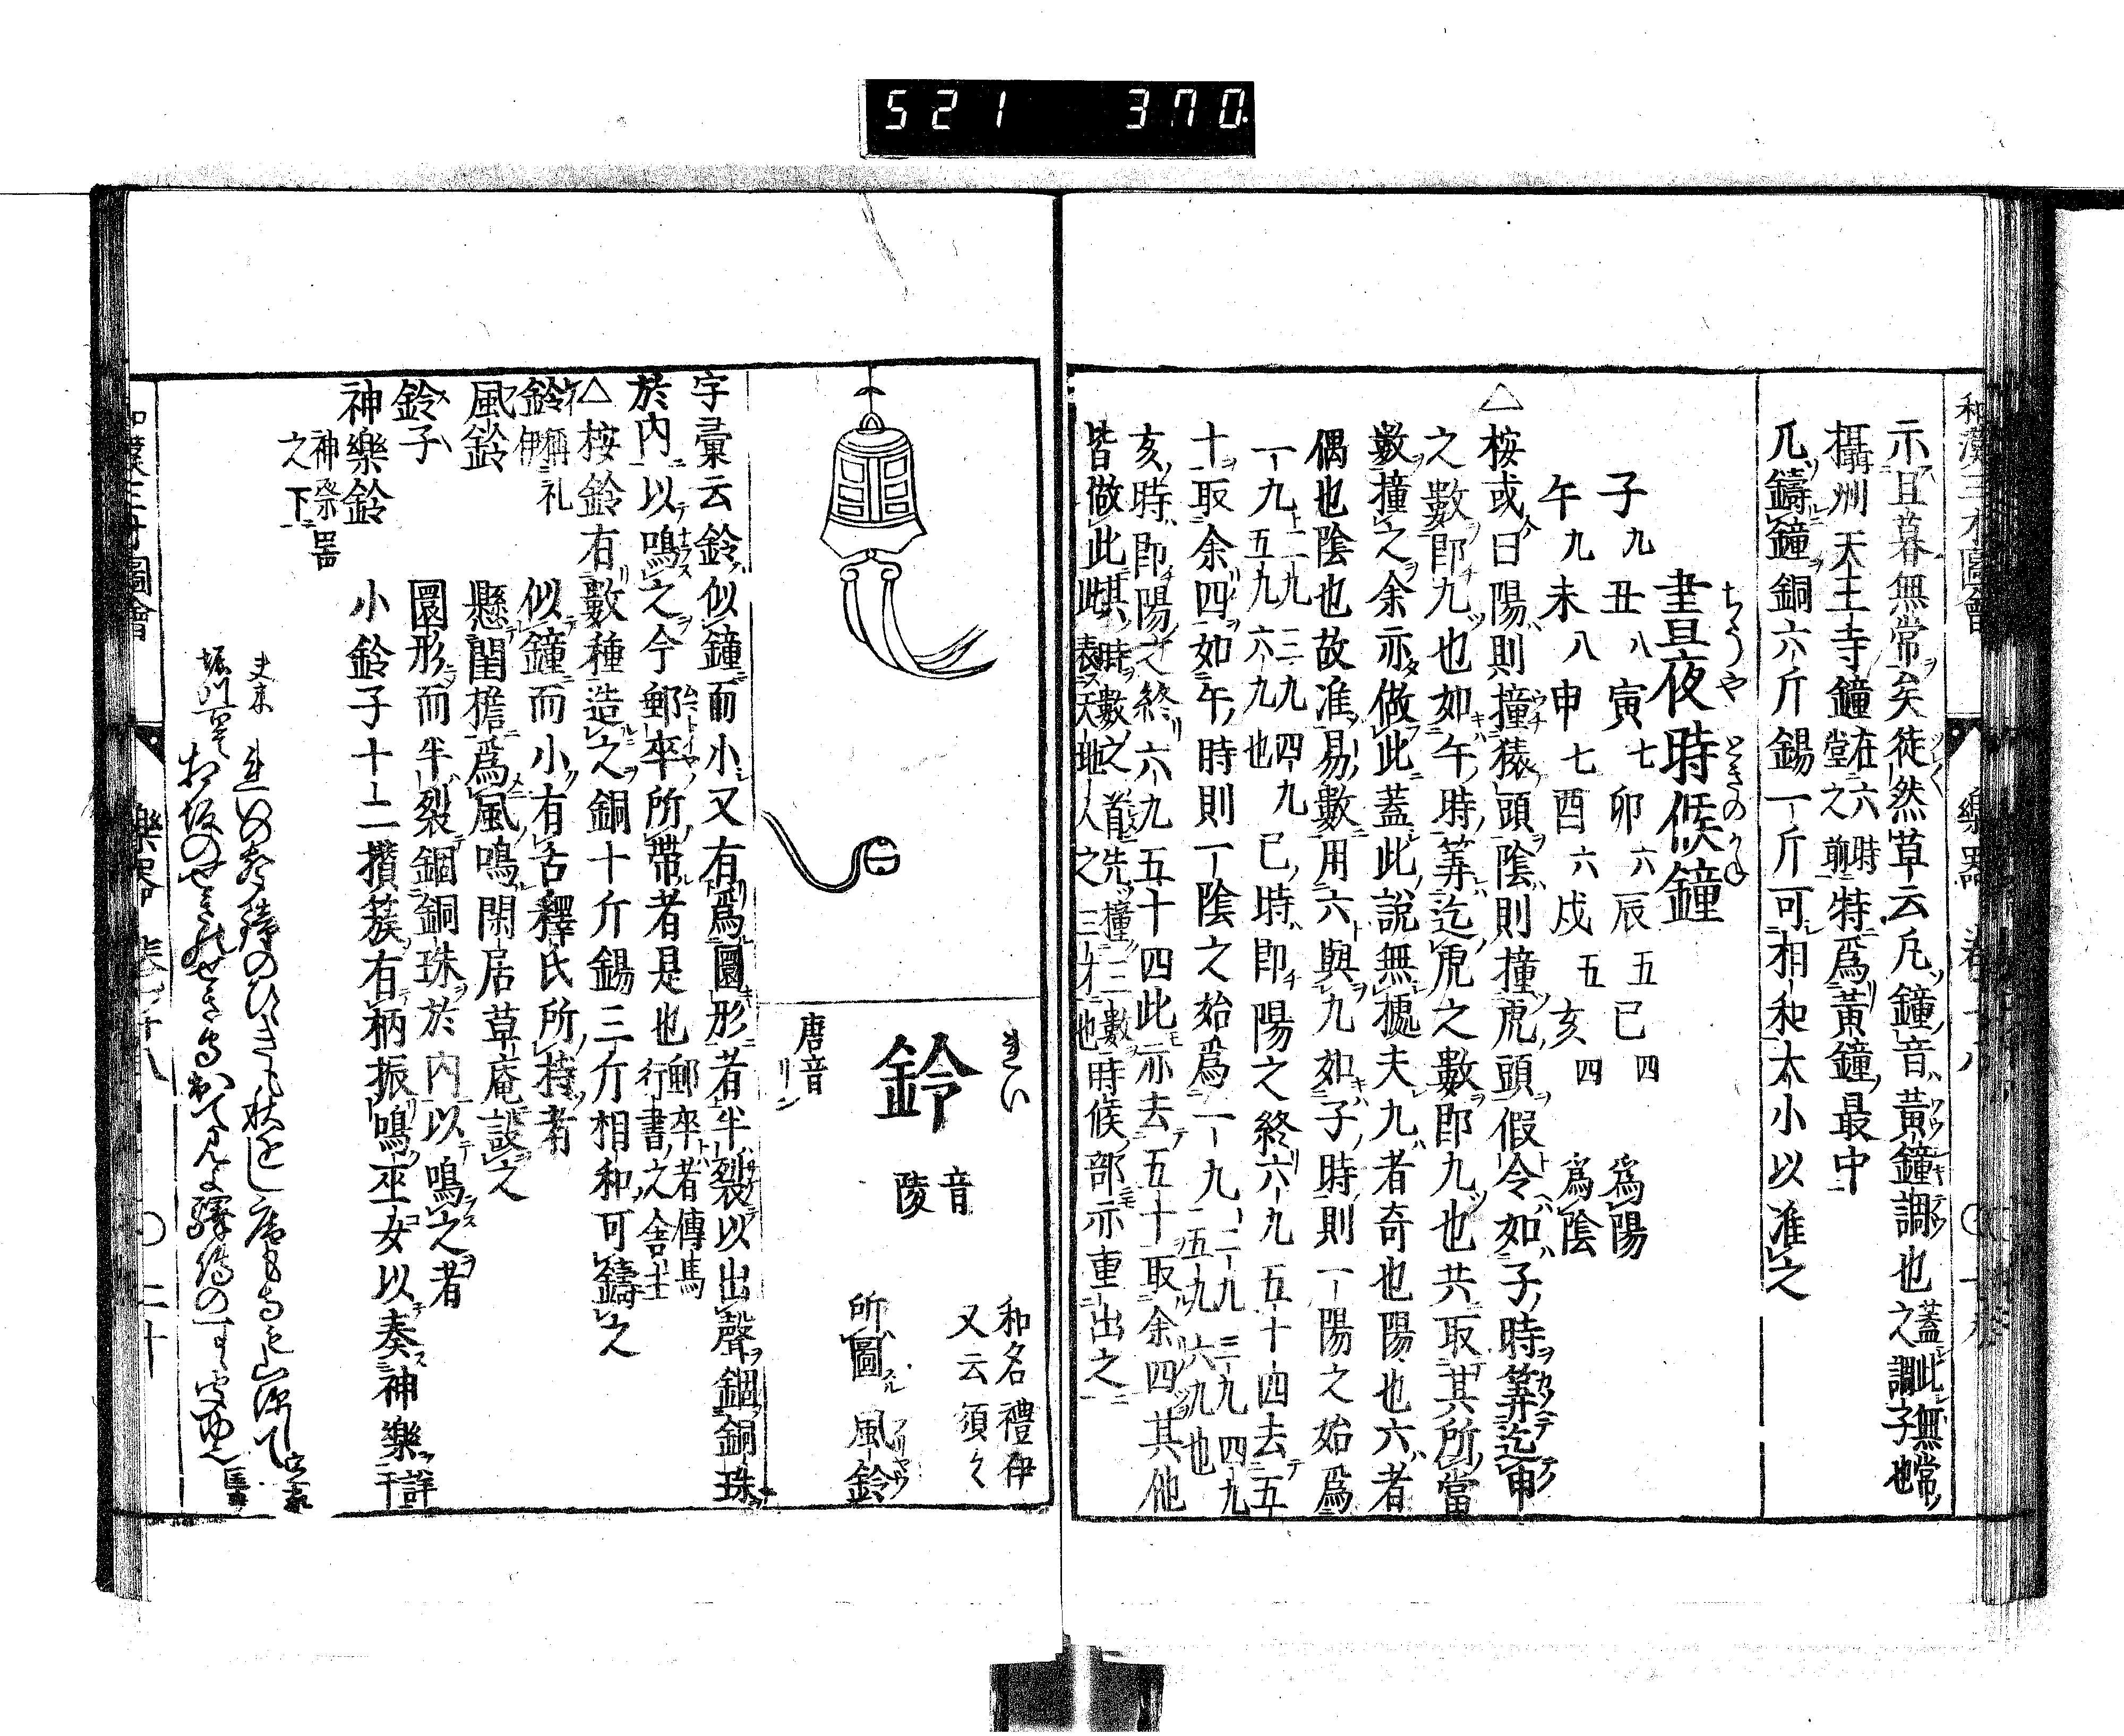 521 370.
示且暮無常矣徒然草云凡鐘音黃鐘調也蓋此無常之調子也
攝州天王寺鐘在六時堂之前特為黃鐘最中
凡鑄鐘銅六斤錫一斤可相和大小以准之
ちうや ときのかね
晝夜時候鐘
子九 丑八 寅七 卯六 辰五 巳四 為陽
午九 未八 申七 酉六 戌五 亥四 為陰
△按或曰陽則撞猿頭陰則撞虎頭假令如子時筭迄申
之數即九也如午時筭迄虎之數即九也共取其所當
數撞之余亦倣此蓋此說無據夫九者奇也陽也六者
偶也陰也故准易數用六與九如子時則一陽之始為
一九 二九 三九 四九 五九 六九也 巳時即陽之終六九五十四去五
十取余四如午時則一陰之始為一九 二九 三九 四九 五九 六九也
亥時即陽之終六九五十四此亦去五十取余四其他
皆倣此其時數之首先撞三數此表天地人之三才也時候部亦重出之
れい
鈴
音陵
和名禮伊
又云須々
唐音リン
所圖風鈴
字彙云鈴似鐘而小又有為圜形者半裂以出聲錮銅珠
於內以鳴之今郵卒所帶者是也郵卒者傳馬行書之舍主
△按鈴有數種造之銅十斤錫三斤相和可鑄之
鈴稱礼伊 似鐘而小有舌釋氏所持者
風鈴 懸閨檐為風鳴閑居草庵設之
鈴子 圜形而半裂錮銅珠於內以鳴之者
神樂鈴 小鈴子十二攢簇有柄振鳴巫女以奏神樂詳于
神祭噐之下
夫木
堀川百
和漢三才圖會 樂器 卷十八 〇二十